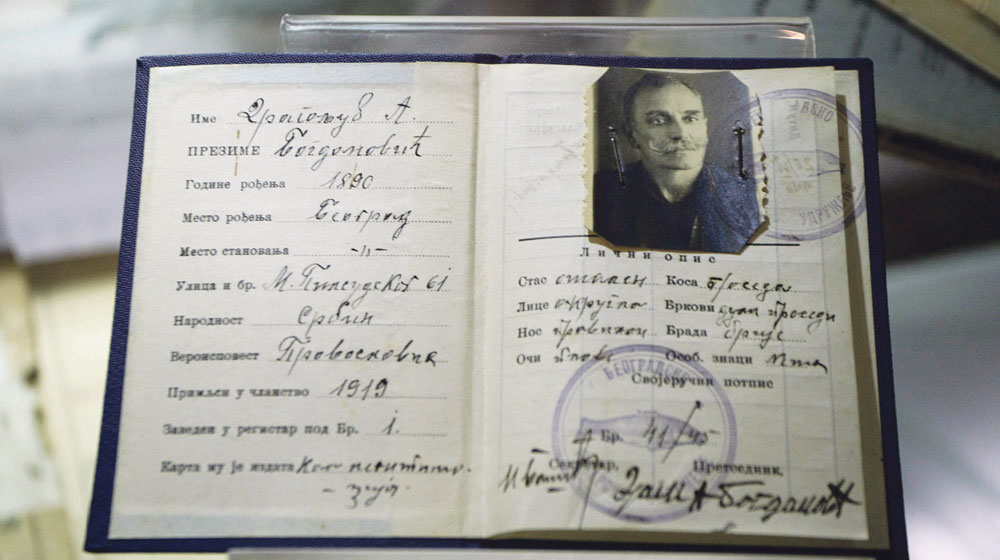 Име Драгољуб А.
ПРЕЗИМЕ Богдановић
Године рођења 1890
Место рођења Београд
Место становања -〃-
Улица и бр. М. Пилсудског 61
Народност Србин
Вероисповест
Примљен у чланство 1919
Заведен у регистар под Бр. 1.
Карта му је издата Као
Лични опис
Стас Коса проседа
Лице округло Бркови проседи
Нос правилан Брада брије
Очи плаве Особ. знаци нема
Својеручни потпис
Бр. 41/45
Секретар, Претседник,
Драг А Богдановић
БЕОГРАДСКО